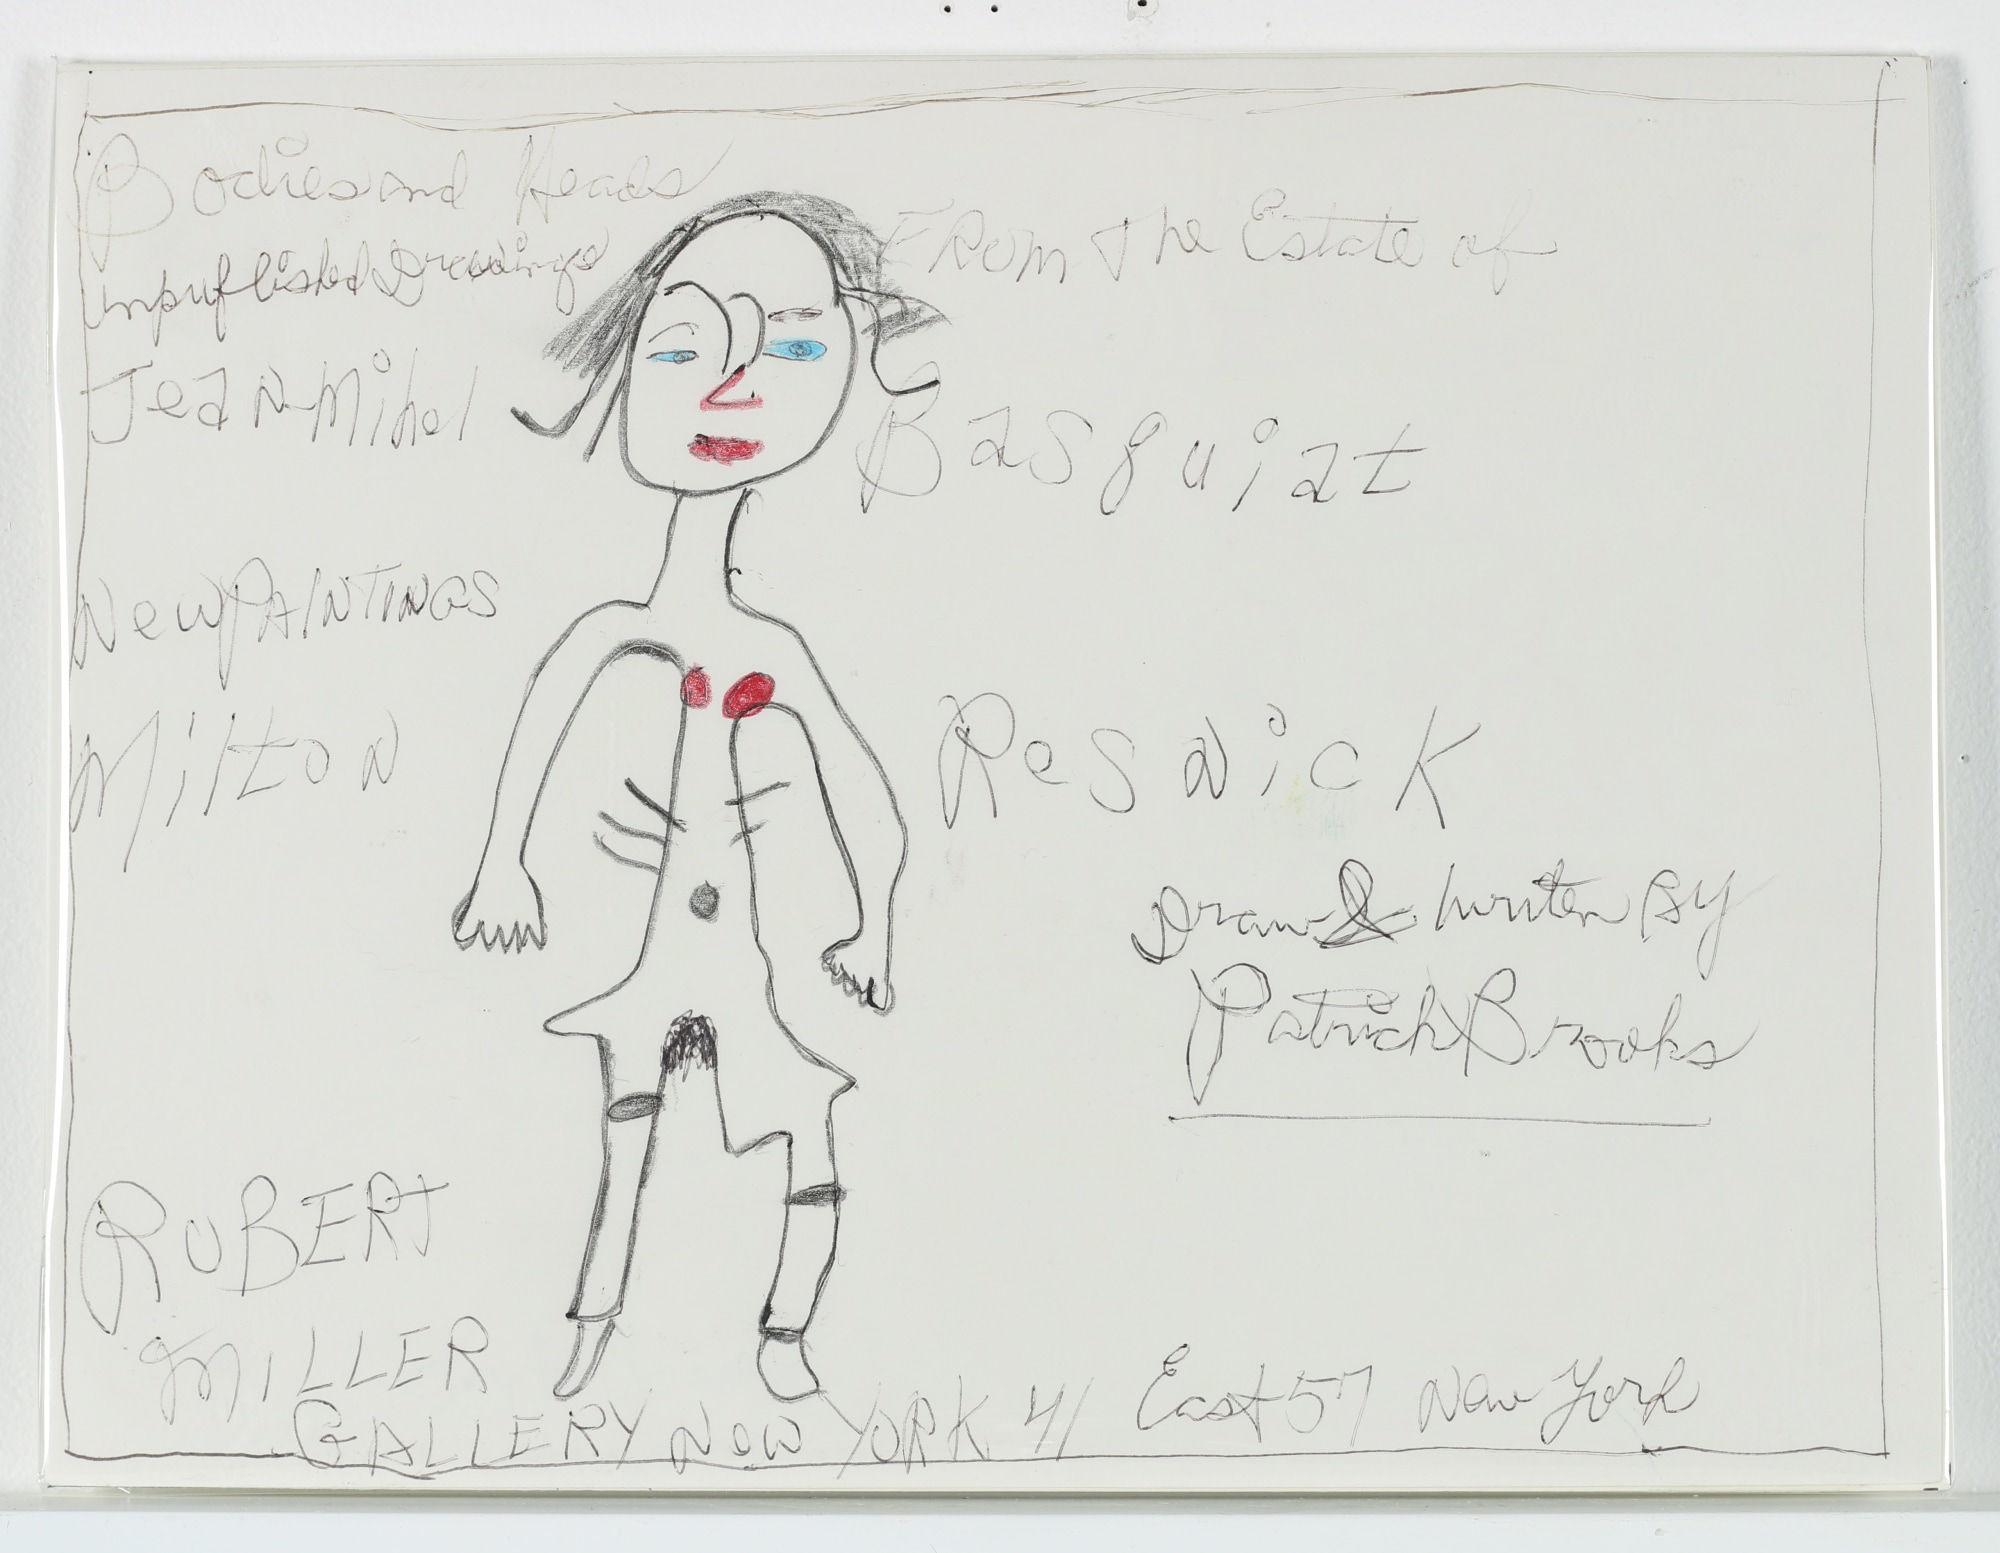 Bodies and Heads
unpuflished Drawings
From The Estate of
Jean-Mihel
Basquiat
New PAINTINGS
Milton
Resnick
Draw & Writen By
Patrick Brooks
RoBERt
MILLER
GALLERY New YORK 41 East 57 New York